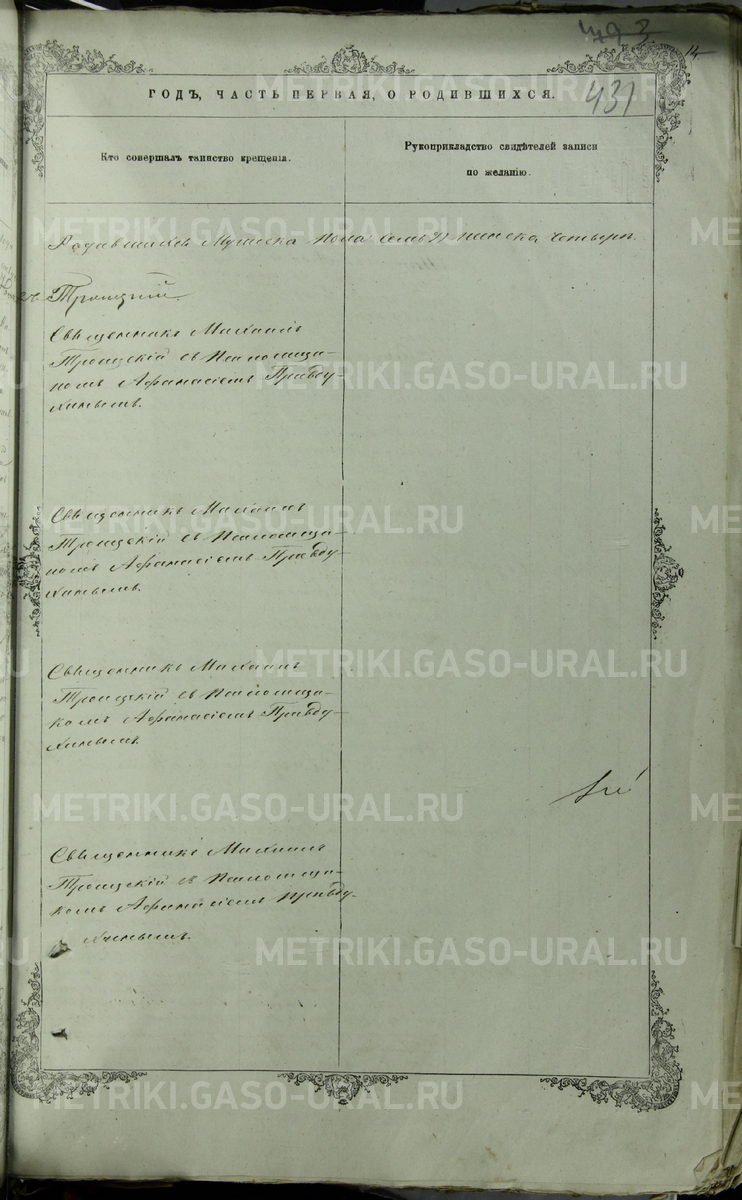 14
ГОДЪ, ЧАСТЬ ПЕРВАЯ, О РОДИВШИХСЯ.
431
Кто совершалъ таинство крещенія.
Рукоприкладство свидѣтелей записи
по желанію.
Родившихся мужеска пола семь 7) женска четыре.
Троицкій
Священникъ Михаилъ
Троицкій съ Псаломщи-
комъ Афанасіемъ Правду-
хинымъ.
Священникъ Михаилъ
Троицкій съ Псаломщи-
комъ Афанасіемъ Правду-
хинымъ.
Священникъ Михаилъ
Троицкій съ Псаломщи-
комъ Афанасіемъ Правду-
хинымъ.
Священникъ Михаилъ
Троицкій съ Псаломщи-
комъ Афанасіемъ Правду-
хинымъ.
METRIKI.GASO-URAL.RU